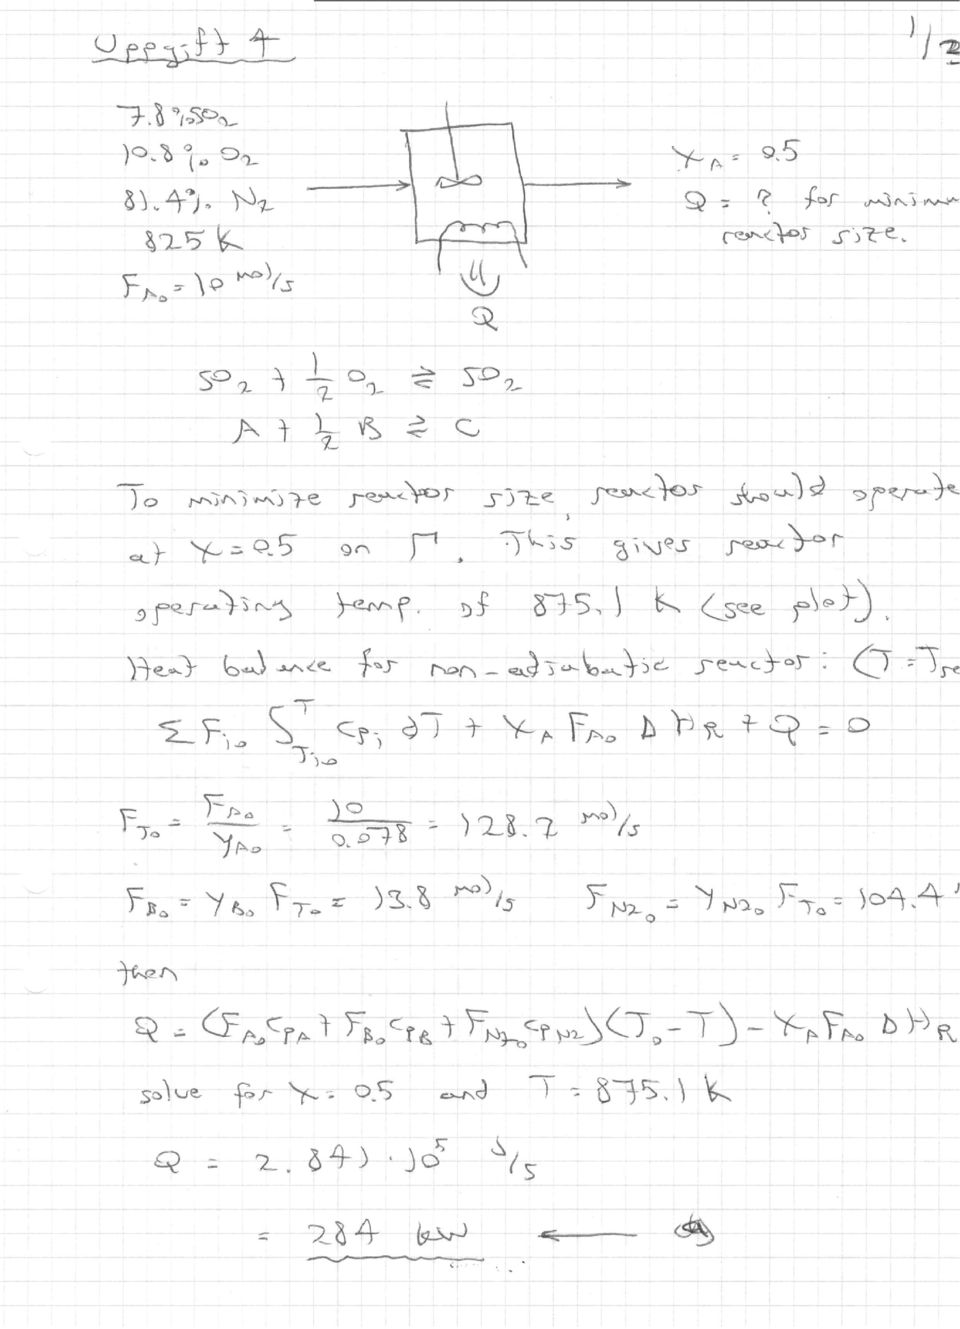 Uppgift 4
1/2
7.8% SO2
10.8% O2
81.4% N2
825 K
FA0 = 10 mol/s
XA = 0.5
Q = ? for minimu
reactor size.
Q
SO2 + 1/2 O2 ⇌ SO2
A + 1/2 B ⇌ C
To minimize reactor size, reactor should operate
at X = 0.5 on Γ. This gives reactor
operating temp. of 875.1 K (see plot).
Heat balance for non-adiabatic reactor: (T = Tre
Σ Fi0 ∫Ti0^T cpi dT + XA FA0 ΔHR + Q = 0
FT0 = FA0/YA0 = 10/0.078 = 128.2 mol/s
FB0 = YB0 FT0 = 13.8 mol/s FN20 = YN20 FT0 = 104.4
then
Q = (FA0 cPA + FB0 cPB + FN20 cPN2)(T0 - T) - XA FA0 ΔHR
solve for X = 0.5 and T = 875.1 K
Q = 2.841·10^5 J/s
= 284 kW ←